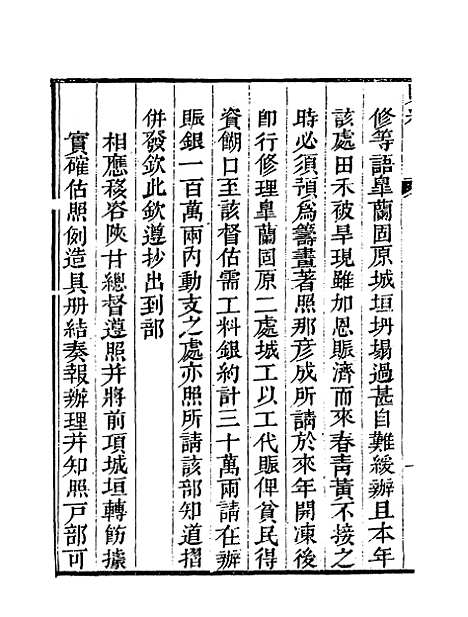 修等語臯蘭固原城垣坍塌過甚自難緩辦且本年
該處田禾被旱現雖加恩賑濟而來春靑黃不接之
時必須預爲籌畫著照那彥成所請於來年開凍後
卽行修理臯蘭固原二處城工以工代賑俾貧民得
資餬口至該督估需工料銀約計三十萬兩請在辦
賑銀一百萬兩內動支之處亦照所請該部知道摺
併發欽此欽遵抄出到部
相應移咨陝甘總督遵照并將前項城垣轉飭據
實確估照例造具册結奏報辦理并知照戸部可